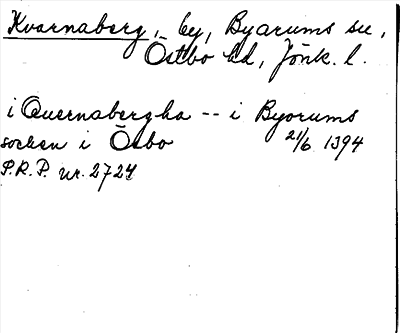 Kvarnaberg, by, Byarums sn,
Östbo hd, Jönk. l.
i Quernabergha -- i Byorums
socken i Östbo 21/6 1394
P.R.P. nr. 2724